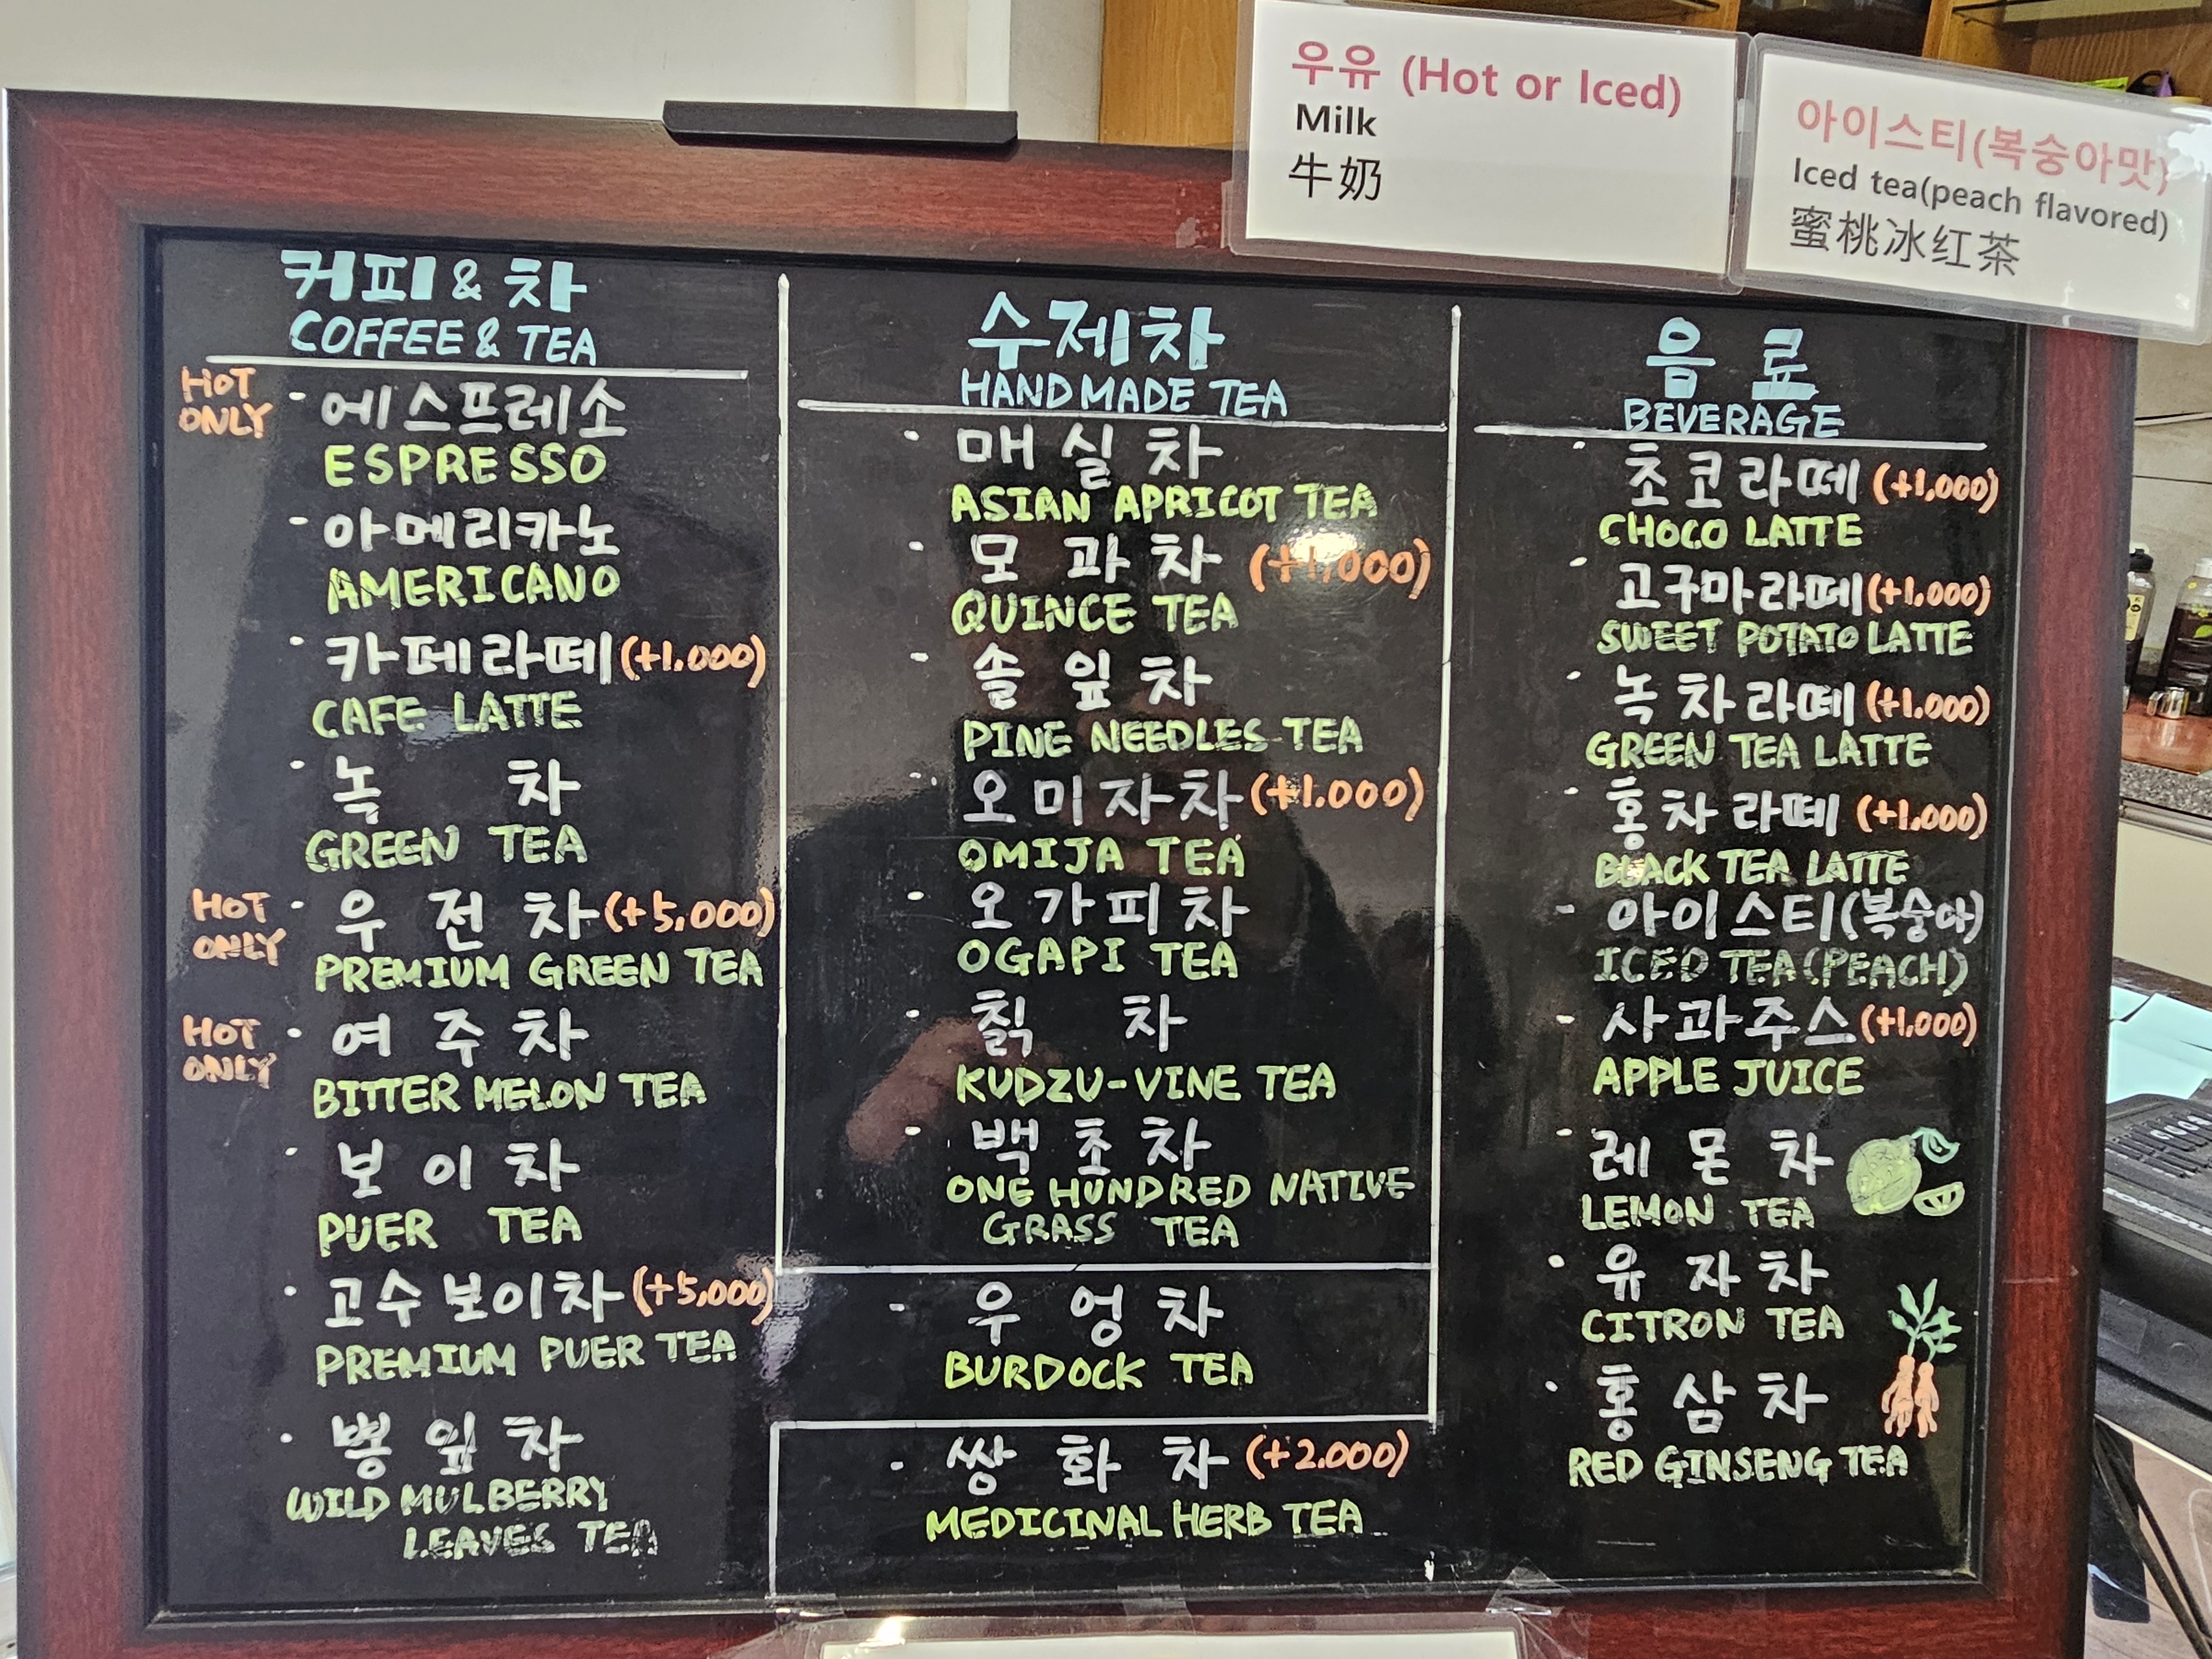 우유 (Hot or Iced)
Milk
牛奶
아이스티(복숭아맛)
Iced tea(peach flavored)
蜜桃冰红茶
커피 & 차
COFFEE & TEA
HOT
ONLY
- 에스프레소
ESPRESSO
- 아메리카노
AMERICANO
- 카페라떼 (+1,000)
CAFE LATTE
- 녹 차
GREEN TEA
HOT
ONLY
- 우 전 차 (+5,000)
PREMIUM GREEN TEA
HOT
ONLY
- 여 주 차
BITTER MELON TEA
- 보 이 차
PUER TEA
- 고수보이차 (+5,000)
PREMIUM PUER TEA
- 뽕 잎 차
WILD MULBERRY
LEAVES TEA
수제차
HANDMADE TEA
- 매 실 차
ASIAN APRICOT TEA
- 모 과 차 (+1,000)
QUINCE TEA
- 솔 잎 차
PINE NEEDLES TEA
- 오미자차 (+1.000)
OMIJA TEA
- 오가피차
OGAPI TEA
- 칡 차
KUDZU-VINE TEA
- 백 초 차
ONE HUNDRED NATIVE
GRASS TEA
- 우 엉 차
BURDOCK TEA
- 쌍 화 차 (+2.000)
MEDICINAL HERB TEA
음 료
BEVERAGE
- 초코라떼 (+1,000)
CHOCO LATTE
- 고구마라떼 (+1,000)
SWEET POTATO LATTE
- 녹차라떼 (+1.000)
GREEN TEA LATTE
- 홍차라떼 (+1,000)
BLACK TEA LATTE
- 아이스티(복숭아)
ICED TEA (PEACH)
- 사과주스 (+1,000)
APPLE JUICE
- 레 몬 차
LEMON TEA
- 유 자 차
CITRON TEA
- 홍 삼 차
RED GINSENG TEA